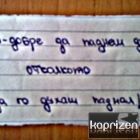 -добре да паднем д
отколкото
да го дълаш паднал
kaprizen